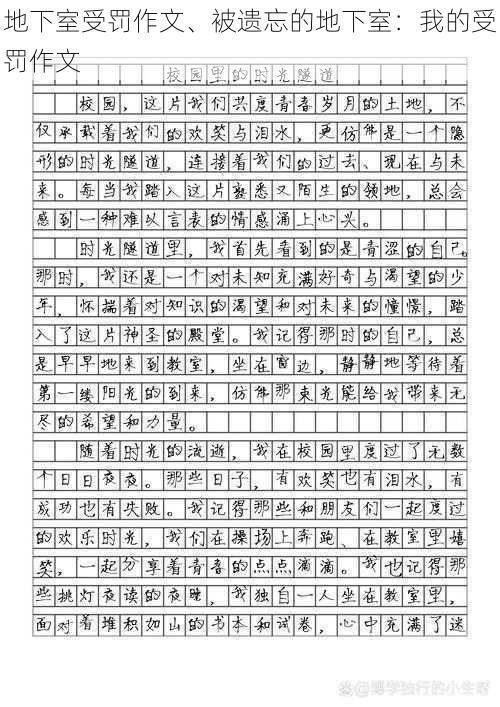 地下室受罚作文、被遗忘的地下室：我的受
罚作文
校园里的时光隧道
校园，这片我们共度青春岁月的土地，不
仅承载着我们的欢笑与泪水，更仿佛是一个隐
形的时光隧道，连接着我们的过去、现在与未
来。每当我踏入这片熟悉又陌生的领地，总会
感到一种难以言表的情感涌上心头。
时光隧道里，我首先看到的是青涩的自己。
那时，我还是一个对未知充满好奇与渴望的少
年，怀揣着对知识的渴望和对未来的憧憬，踏
入了这片神圣的殿堂。我记得那时的自己，总
是早早地来到教室，坐在窗边，静静地等待着
第一缕阳光的到来，仿佛那束光能给我带来无
尽的希望和力量。
随着时光的流逝，我在校园里度过了无数
个日日夜夜。那些日子，有欢笑也有泪水，有
成功也有失败。我记得那些和朋友们一起度过
的欢乐时光，我们在操场上奔跑、在教室里嬉
笑，一起分享着青春的点点滴滴。我也记得那
些挑灯夜读的夜晚，我独自一人坐在教室里，
面对着堆积如山的书本和试卷，心中充满了迷
@博学独行的小生呀